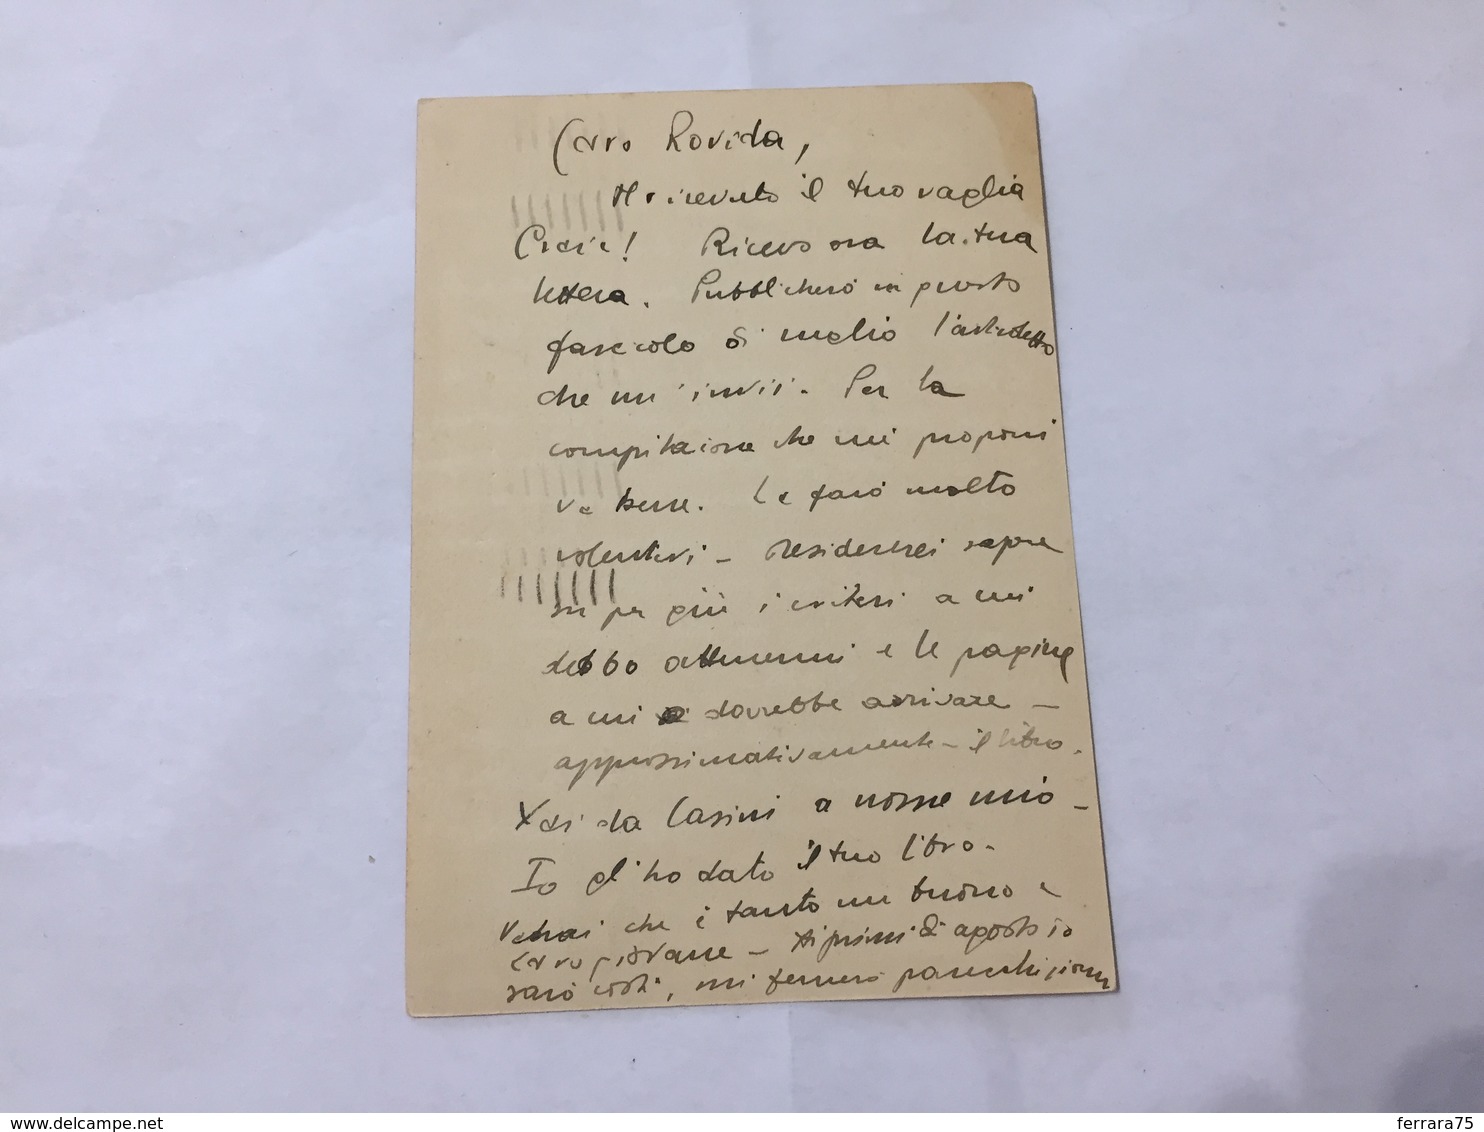 Caro Rovida,
ricevuto il tuo vaglia
Grazie! Ricevo ora la tua
lettera. Pubblicherò in questo
fascicolo di luglio l'articoletto
che m'invii. Per la
compilazione che mi proponi
va bene. La farò molto
volentieri - Desidererei sapere
su per giù i criteri a cui
debbo attenermi e le pagine
a cui dovrebbe arrivare -
approssimativamente - il libro.
Vedi da Casini a nome mio -
Io gli ho dato il tuo libro -
Vedrai che è tanto un buono e
caro giovane - Ai primi di agosto io
sarò costì, mi fermerò parecchi giorni
www.delcampe.net
ferrara75